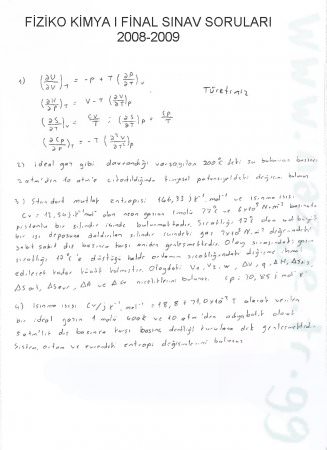 FİZİKO KİMYA I FİNAL SINAV SORULARI
2008-2009
1) (∂U/∂V)_T = -P + T (∂P/∂T)_V
(∂H/∂P)_T = V - T (∂V/∂T)_P Türetiniz
(∂S/∂T)_V = CV/T ; (∂S/∂T)_P = CP/T
(∂CP/∂P)_T = -T (∂²V/∂T²)_P
2) ideal gaz gibi davrandığı varsayılan 200°C deki su buharının basıncı
2 atm'den 10 atm'e çıkarıldığında kimyasal potansiyeldeki değişimi bulunuz
3) Standart mutlak entropisi 146,33 J K⁻¹ mol⁻¹ ve ısınma ısısı
olan neon gazının 1 molü 77°C ve N m⁻² basınçta
pistonlu bir silindir içinde bulunmaktadır. Sıcaklığı 17°C olan
bir ısı deposuna daldırılan silindir içindeki gaz N m⁻² değerindeki
sabit dış basınca karşı aniden genleşmektedir. Olay sırasında gazın
sıcaklığı 17°C'e düştüğü halde ortamın sıcaklığındaki değişme ihmal
edilecek kadar küçük kalmıştır. Olaydaki V₁, V₂, w, ΔU, q, ΔH, ΔSsis,
ΔSort, ΔSevr, ΔA ve ΔG niceliklerini bulunuz.
4) Isınma ısısı olarak verilen
bir ideal gazın 1 molü 600K ve 10 atm'den adyabatik olarak
dış basınca karşı basınç denkliği kurulana dek genleşmektedir.
Sistem, ortam ve evrendeki entropi değişimlerini bulunuz